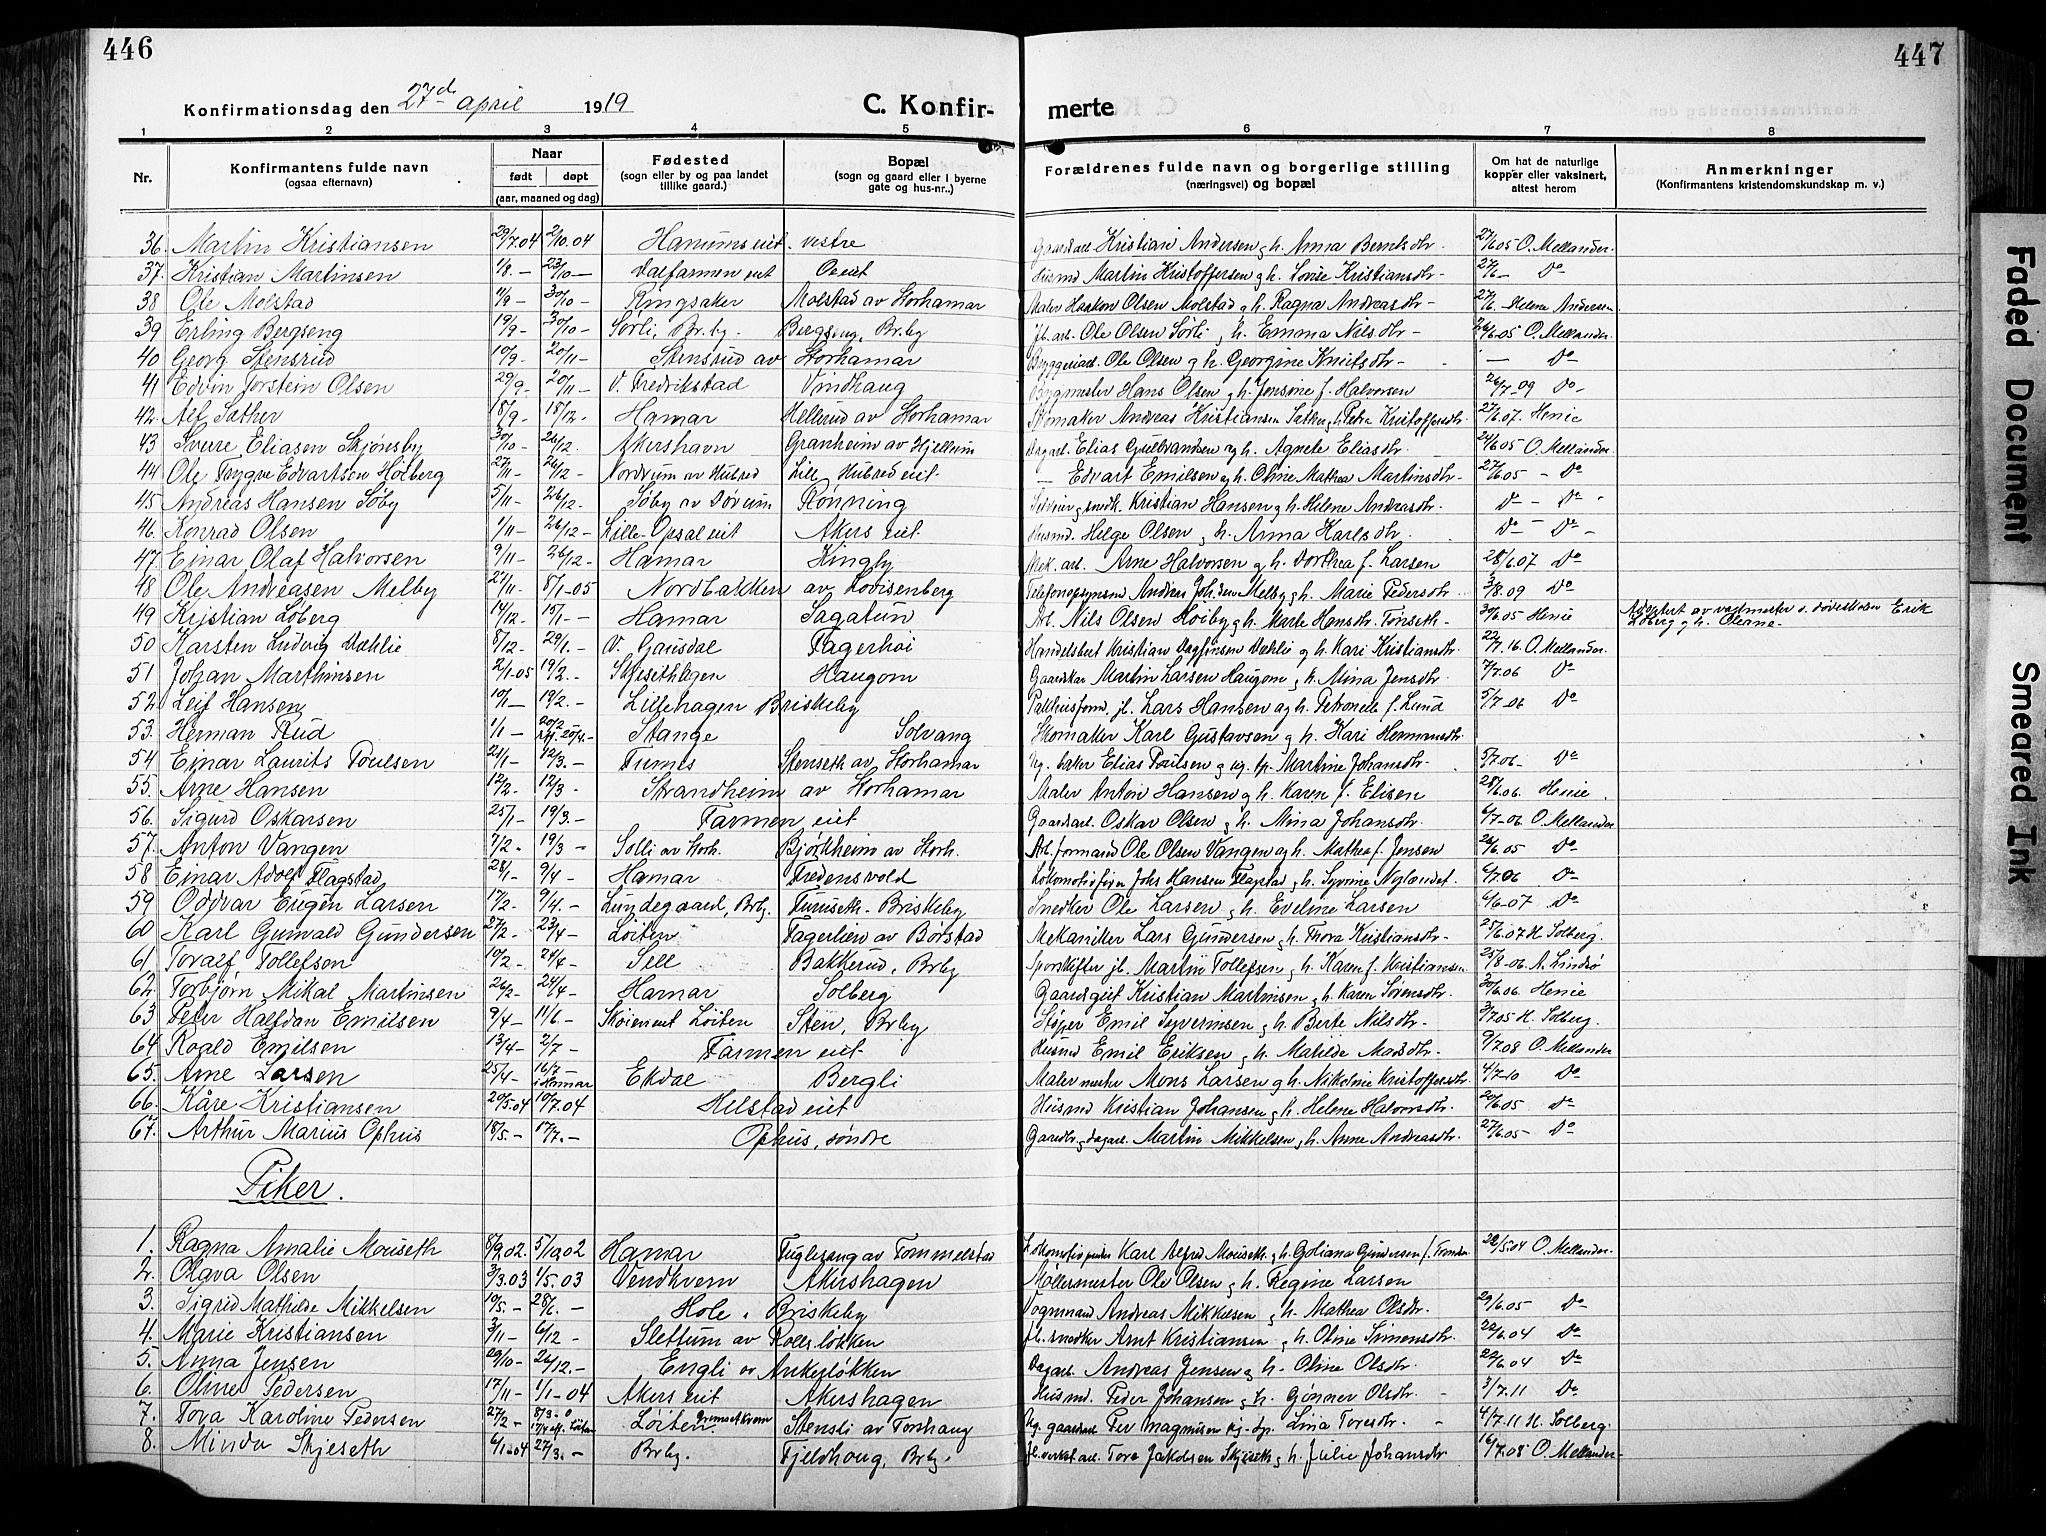 446
447
Konfirmationsdag den 27d april 1919
C. Konfir-
merte
1 2 3 4 5 6 7 8
Nr.
Konfirmantens fulde navn
(ogsaa efternavn)
Naar
født døpt
(aar, maaned og dag)
Fødested
(sogn eller by og paa landet
tillike gaard.)
Bopæl
(sogn og gaard eller i byerne
gate og hus-nr..)
Forældrenes fulde navn og borgerlige stilling
(næringsvei) og bopæl
Om hat de naturlige
kopper eller vaksinert,
attest herom
Anmerkninger
(Konfirmantens kristendomskundskap m. v.)
36. Martin Kristiansen 29/7.04 2/10.04 Hanums eiet. vestre Gaardsarb. Kristian Andersen g h. Anna Berntsdtr. 27/6.05 O. Mellander.
37. Kristian Martinsen 1/8 - 23/10 - Dalfarmen eiet Oeiet Husmd Martin Kristoffersen g h. Lovise Kristiansdtr - 27/6 - Do
38 Ole Molstad 11/9 - 30/10 - Ringsaker Molstad av Storhamar Maler Haakon Olsen Molstad g h. Ragna Andreasdtr - 27/6. - Helene Andersen
39 Erling Bergseng 19/9 - 30/10 - Sørli, Br.by. Bergseng, Br.by Jb. arb. Ole Olsen Sørli g h. Emma Nilsdtr - 26/6.05 O. Mellander.
40 Georg Stensrud 10/9. 20/11 - Stensrud av Storhamar Byggeriarb. Ole Olsen g h. Georgine Knutsdtr - - Do
41 Edvin Torstein Olsen 29/9. 20/11 - V. Fredrikstad Vindhaug Bygmester Hans Olsen g h. Jensine f. Halvorsen 26/7.09 Do -
42. Alf Sather 18/9. 18/12. Hamar Mellerud av Storhamar Skomaker Andreas Kristiansen Sather g h. Petra Kristoffersdtr. 27/6.07. Henie
43 Sverre Eliasen Skjønsby 30/10 - 26/12. Akershavn Granheim av Hjellum Dagarb. Elias Gulbrandsen g h. Agnete Eliasdtr. 24/6.05 O. Mellander.
44 Ole Trygve Edvartsen Holberg 27/11 - 26/12 - Nordvum av Hubred Lill Hubred eiet. - Edvart Emilsen g h. Oline Mathea Martinsdtr - 27/6.05 - Do
45 Andreas Hansen Søby 5/11 - 26/12. Søby av Døvum Rønning Kristian Hansen g h. Helene Andreasdtr. Do - Do -
46. Konrad Olsen 1/11 - 26/12 - Lille-Opsal eiet Akers eiet. Husmd. Helge Olsen g h. Anna Karlsdtr. Do - Do -
47. Einar Olaf Halvorsen 9/11 - 26/12 - Hamar Kingby Mek. arb. Arne Halvorsen g h. Dorthea f. Larsen 28/6.07 Do
48 Ole Andreasen Melby 27/11 - 8/1-05 Nordbakken av Lovisenberg Telefonopsynsmd Andreas Johsen Melby g h. Marie Pedersdtr. 3/8.09 Do
49 Kristian Løberg 14/12. 15/1 - Hamar Sagatun Arb. Nils Olsen Hoiby g h. Marte Hansdtr. Tønseth - 30/6.05 Henie Adoptert av vagtmester v. døveskolen Erik
Løberg g h. Oleane -
50 Karsten Ludvig Dæhlie 8/12 - 29/1. - V. Gausdal Fagerhøi Handelsbest. Kristian Dagfinsen Dæhli g h. Kari Kristiansdtr. 22/7.16 O. Mellander.
51 Johan Marthinsen 2/1-05 19/2. - Skjesethhagen Haugom Gaardskar Martin Larsen Haugom g h. Mina Jensdtr. 7/7.06 Do
52. Leif Hansen 10/1 - 19/2. - Lillehagen Briskeby Pakhusform. jb. Lars Hansen g h. Petronelle f. Lund 5/7-06 Do
53. Herman Rud 1/1 - 20/2 20/4. - Stange Solvang Skomaker Karl Gustavsen g h. Kari Hermansdtr.
54 Einar Laurits Poulsen 21/1 - 12/3. - Furnes Stenseth av Storhamar Ug. baker Elias Poulsen g ug. tp. Martine Johansdtr - 5/7.06 - Do
55. Arne Hansen 12/2. 12/3 - Strandheim av Storhamar Maler Anton Hansen g h. Karen f. Elisen 28/6.06. Henie.
56. Sigurd Oskarsen 25/1 - 19/3. - Farmen eiet Gaardsarb. Oskar Olsen g h. Mina Johansdtr. 6/7-06 O. Mellander
57. Anton Vangen 7/2. 19/3 - Solli av Storh. Bjørkheim av Storh. Arb. formand Ole Olsen Vangen g h. Mathea f. Jensen 26/6.05 Do
58 Einar Adolf Flagstad 28/1 - 9/4 - Hamar Fredensvold Lokomotivfører Johs Hansen Flagstad g h. Syverine Nylændet. 6/7.06 Do
59 Oddvar Eugen Larsen 17/2. 9/4. - Lundegaard, Brby. Furuseth. Briskeby Snedker Ole Larsen g h. Eveline Larsen 6/6-07 Do
60 Karl Gunvald Gundersen 27/2. 23/4 - Løiten Fagerlien av Børstad Mekaniker Lars Gundersen g h. Thora Kristiansdtr - 25/6.07 H. Solberg.
61 Toralf Tollefsen 10/2 - 24/4 - Sell Bakkerud, Brby Sporskifter jb. Martin Tollefsen g h. Karen f. Kristiansen 25/8-06. A. Lindsø
62. Torbjørn Mikal Martinsen 26/2 - 24/4 - Hamar Solberg Gaardsgut Kristian Martinsen g h. Karen Sørensdtr. 30/6.06 Henie
63 Peter Halfdan Emilsen 9/4 - 11/6 - Skøien eiet Løiten Sten, Brby Støper Emil Syverinsen g h. Berte Nilsdtr. 3/7.05 H. Solberg.
64 Roald Emilsen 13/4 - 2/7 - Farmen eiet Husmd Emil Eriksen g h. Mathilde Mardtr. 9/7.08 O. Mellander
65. Arne Larsen 25/4 - 16/7 - i Hamar Ekdal Bergli Malermester Mons Larsen g h. Nikoline Kristoffersdtr. 4/7-10 Do
66 Kåre Kristiansen 20/5.04 10/7.04 Hilstad eiet Husmd Kristian Johansen g h. Helene Halvorsdtr. 20/6.05 Do
67. Arthur Marius Ophus 18/5. - 17/7. - Ophus, søndre Gaardbr g dagarb. Martin Mikkelsen g h. Anne Andreasdtr. 27/6.05 - Do
Piker.
1. Ragna Amalie Mouseth 8/9.02. 5/10 02 Hamar Fuglesang av Tommelstad Karl Alfred Mouseth. g h. Goliana Gundersen 28/5.04 O. Mellander.
2. Olava Olsen 3/3.03 1/5.03 Vendkvern Akershagen Møllermester Ole Olsen g h. Regine Larsen
3. Sigrid Mathilde Mikkelsen 19/5. - 28/6. - Hole. Briskeby Vognmand Andreas Mikkelsen g h. Mathea Olsdtr. 29/6.05 Do
4. Marie Kristiansen 3/11 - 6/12 - Slettum av Rollsløkken jb. snedker Arnt Kristiansen g h. Oline Simensdtr. 22/6.04 Do
5. Anna Jensen 29/10 - 26/12. - Engli av Ankerløkken Dagarb. Andreas Jensen g h. Oline Olsdtr. 29/6.04 Do
6. Oline Pedersen 17/11 - 1/1-04 Akers eiet Akershagen Husmd. Peder Johansen g h. Gønner Olsdtr. - 3/7.11 Do
7. Tora Karoline Pedersen 27/2 - 8/3-0 Løiten Stensli av Torshaug Ug. gaardarb Per Magnussen pig-tp. Lina Toresdtr. - 4/7.11 H. Solberg.
8. Minda Skjeseth 6/1-04 27/3. - Brby. Fjeldhoug, Brby. jb. verkst.arb. Tore Jakobsen Skjeseth g h. Julie Johansdtr 16/7.08 O. Mellander
Faded Document
Smeared Ink